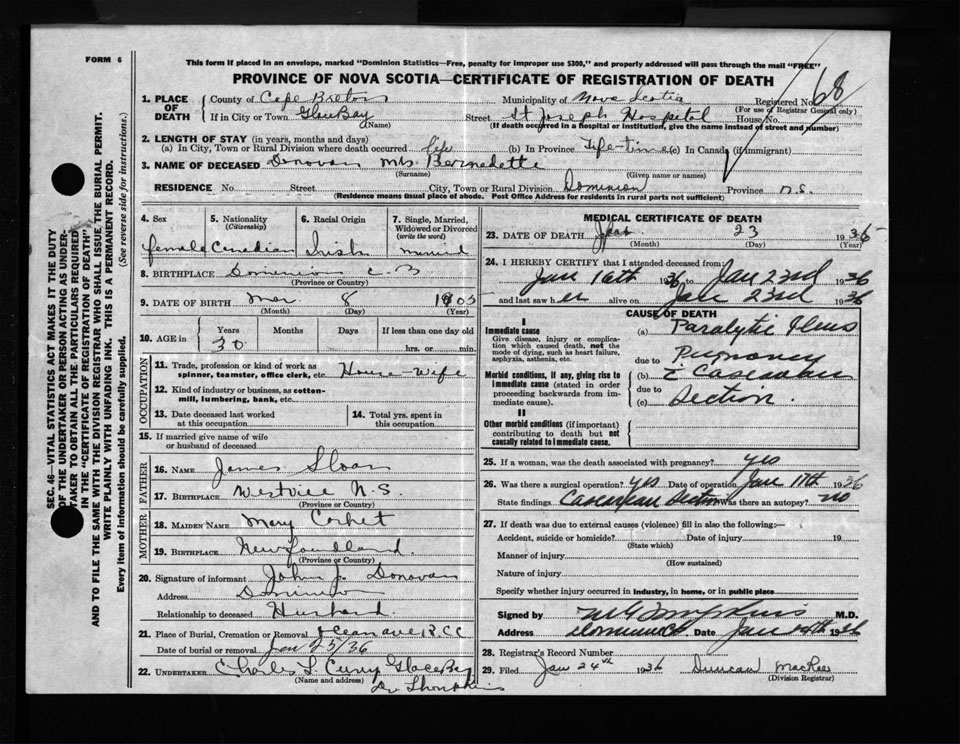 FORM 6
This form if placed in an envelope, marked "Dominion Statistics—Free, penalty for improper use $300," and properly addressed will pass through the mail "FREE"
PROVINCE OF NOVA SCOTIA—CERTIFICATE OF REGISTRATION OF DEATH
1. PLACE OF DEATH
County of Cape Breton Municipality of Nova Scotia Registered No. 68
(For use of Registrar General only)
If in City or Town Glace Bay Street St Joseph Hospital House No.
(Name) (If death occurred in a hospital or institution, give the name instead of street and number)
2. LENGTH OF STAY (in years, months and days)
(a) In City, Town or Rural Division where death occurred life (b) In Province Life-time (c) In Canada (if immigrant)
3. NAME OF DECEASED Donovan Mrs Bernadette
(Surname) (Given name or names)
RESIDENCE No Street City, Town or Rural Division Dominion Province N.S.
(Residence means usual place of abode. Post Office Address for residents in rural parts not sufficient)
SEC. 46—VITAL STATISTICS ACT MAKES IT THE DUTY
OF THE UNDERTAKER OR PERSON ACTING AS UNDER-
TAKER TO OBTAIN ALL THE PARTICULARS REQUIRED
IN THE "CERTIFICATE OF REGISTRATION OF DEATH"
AND TO FILE THE SAME WITH THE DIVISION REGISTRAR WHO SHALL ISSUE THE BURIAL PERMIT.
WRITE PLAINLY WITH UNFADING INK. THIS IS A PERMANENT RECORD.
Every item of information should be carefully supplied. (See reverse side for instructions.)
4. Sex 5. Nationality (Citizenship) 6. Racial Origin 7. Single, Married, Widowed or Divorced (write the word)
female Canadian Irish married
8. BIRTHPLACE Dominion C.B
(Province or Country)
9. DATE OF BIRTH Mar 8 1905
(Month) (Day) (Year)
10. AGE in Years Months Days If less than one day old
30 hrs. or min.
OCCUPATION
11. Trade, profession or kind of work as spinner, teamster, office clerk, etc. House-wife
12. Kind of industry or business, as cotton-mill, lumbering, bank, etc.
13. Date deceased last worked at this occupation 14. Total yrs. spent in this occupation
15. If married give name of wife or husband of deceased
FATHER
16. NAME James Sloan
17. BIRTHPLACE Westville N.S.
(Province or Country)
MOTHER
18. MAIDEN NAME Mary Corbet
19. BIRTHPLACE Newfoundland
(Province or Country)
20. Signature of informant John J. Donovan
Address Dominion
Relationship to deceased Husband
21. Place of Burial, Cremation or Removal R C C
Date of burial or removal Jan 25/36
22. UNDERTAKER Charles Curry Glace Bay
(Name and address)
MEDICAL CERTIFICATE OF DEATH
23. DATE OF DEATH Jan 23 1936
(Month) (Day) (Year)
24. I HEREBY CERTIFY that I attended deceased from:
Jan 16th 1936 to Jan 23rd 1936
and last saw her alive on Jan 23rd 1936
CAUSE OF DEATH
I
Immediate cause
Give disease, injury or complication which caused death, not the mode of dying, such as heart failure, asphyxia, asthenia, etc.
(a) Paralytic Ileus
due to Pregnancy
Morbid conditions, if any, giving rise to immediate cause (stated in order proceeding backwards from immediate cause).
(b) c̄ Caesarean
due to
(c) Section.
II
Other morbid conditions (if important) contributing to death but not causally related to immediate cause.
25. If a woman, was the death associated with pregnancy? yes
26. Was there a surgical operation? yes Date of operation Jan 17th 1936
State findings Caesarean Section Was there an autopsy? no
27. If death was due to external causes (violence) fill in also the following:—
Accident, suicide or homicide? Date of injury 19
(State which)
Manner of injury
(How sustained)
Nature of injury
Specify whether injury occurred in industry, in home, or in public place
Signed by M.D.
Address Dominion CB Date Jan 1936
28. Registrar's Record Number
29. Filed Jan 24th 1936 Duncan MacRae
(Division Registrar)